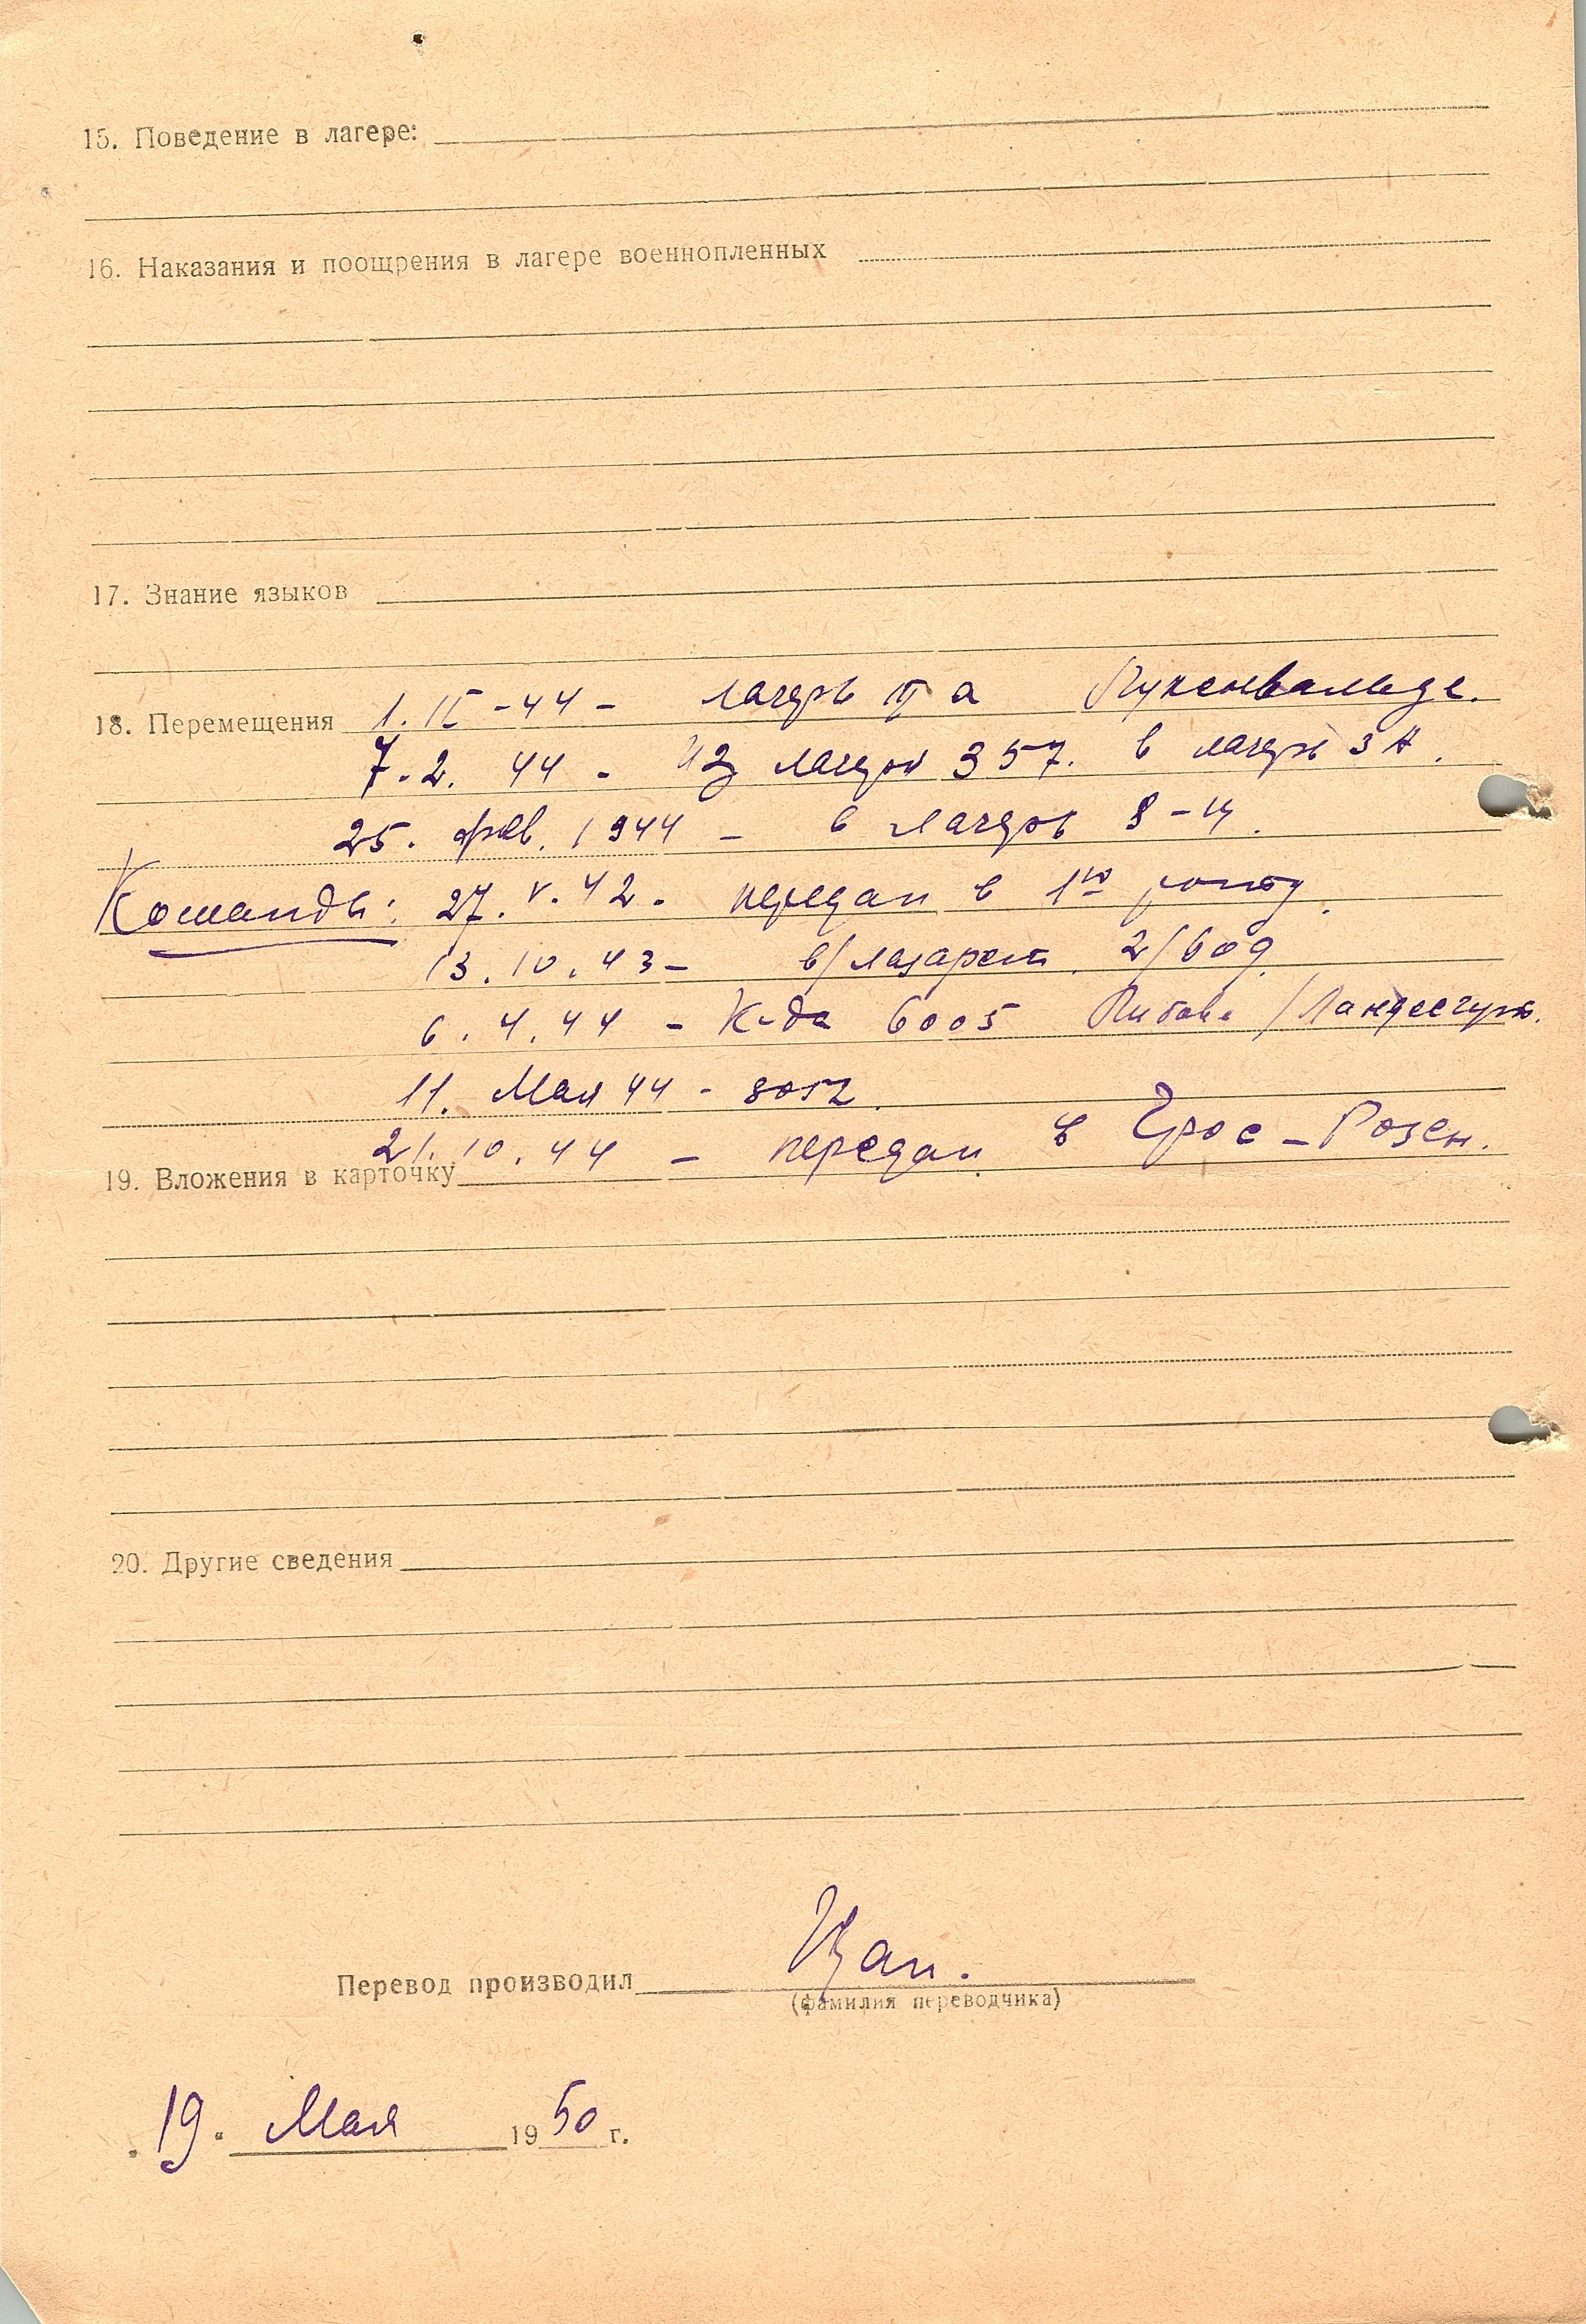 15. Поведение в лагере:
16. Наказания и поощрения в лагере военнопленных
17. Знание языков
18. Перемещения 1. II - 44 - лагерь III а Лукенвальде.
7. 2. 44 - Из лагеря 357. в лагерь 3 А.
25. фев. 1944 - в лагерь 8 -
Команды: 27. V. 42. передан в 1ю роту.
13. 10. 43 - в/лазарет 2/609
6. 4. 44 - К-да 6005 Либау /
11. Мая 44 -
21. 10. 44 - передан в Грос - Розен.
19. Вложения в карточку
20. Другие сведения
Перевод производил
(фамилия переводчика)
19. Мая 1950 г.